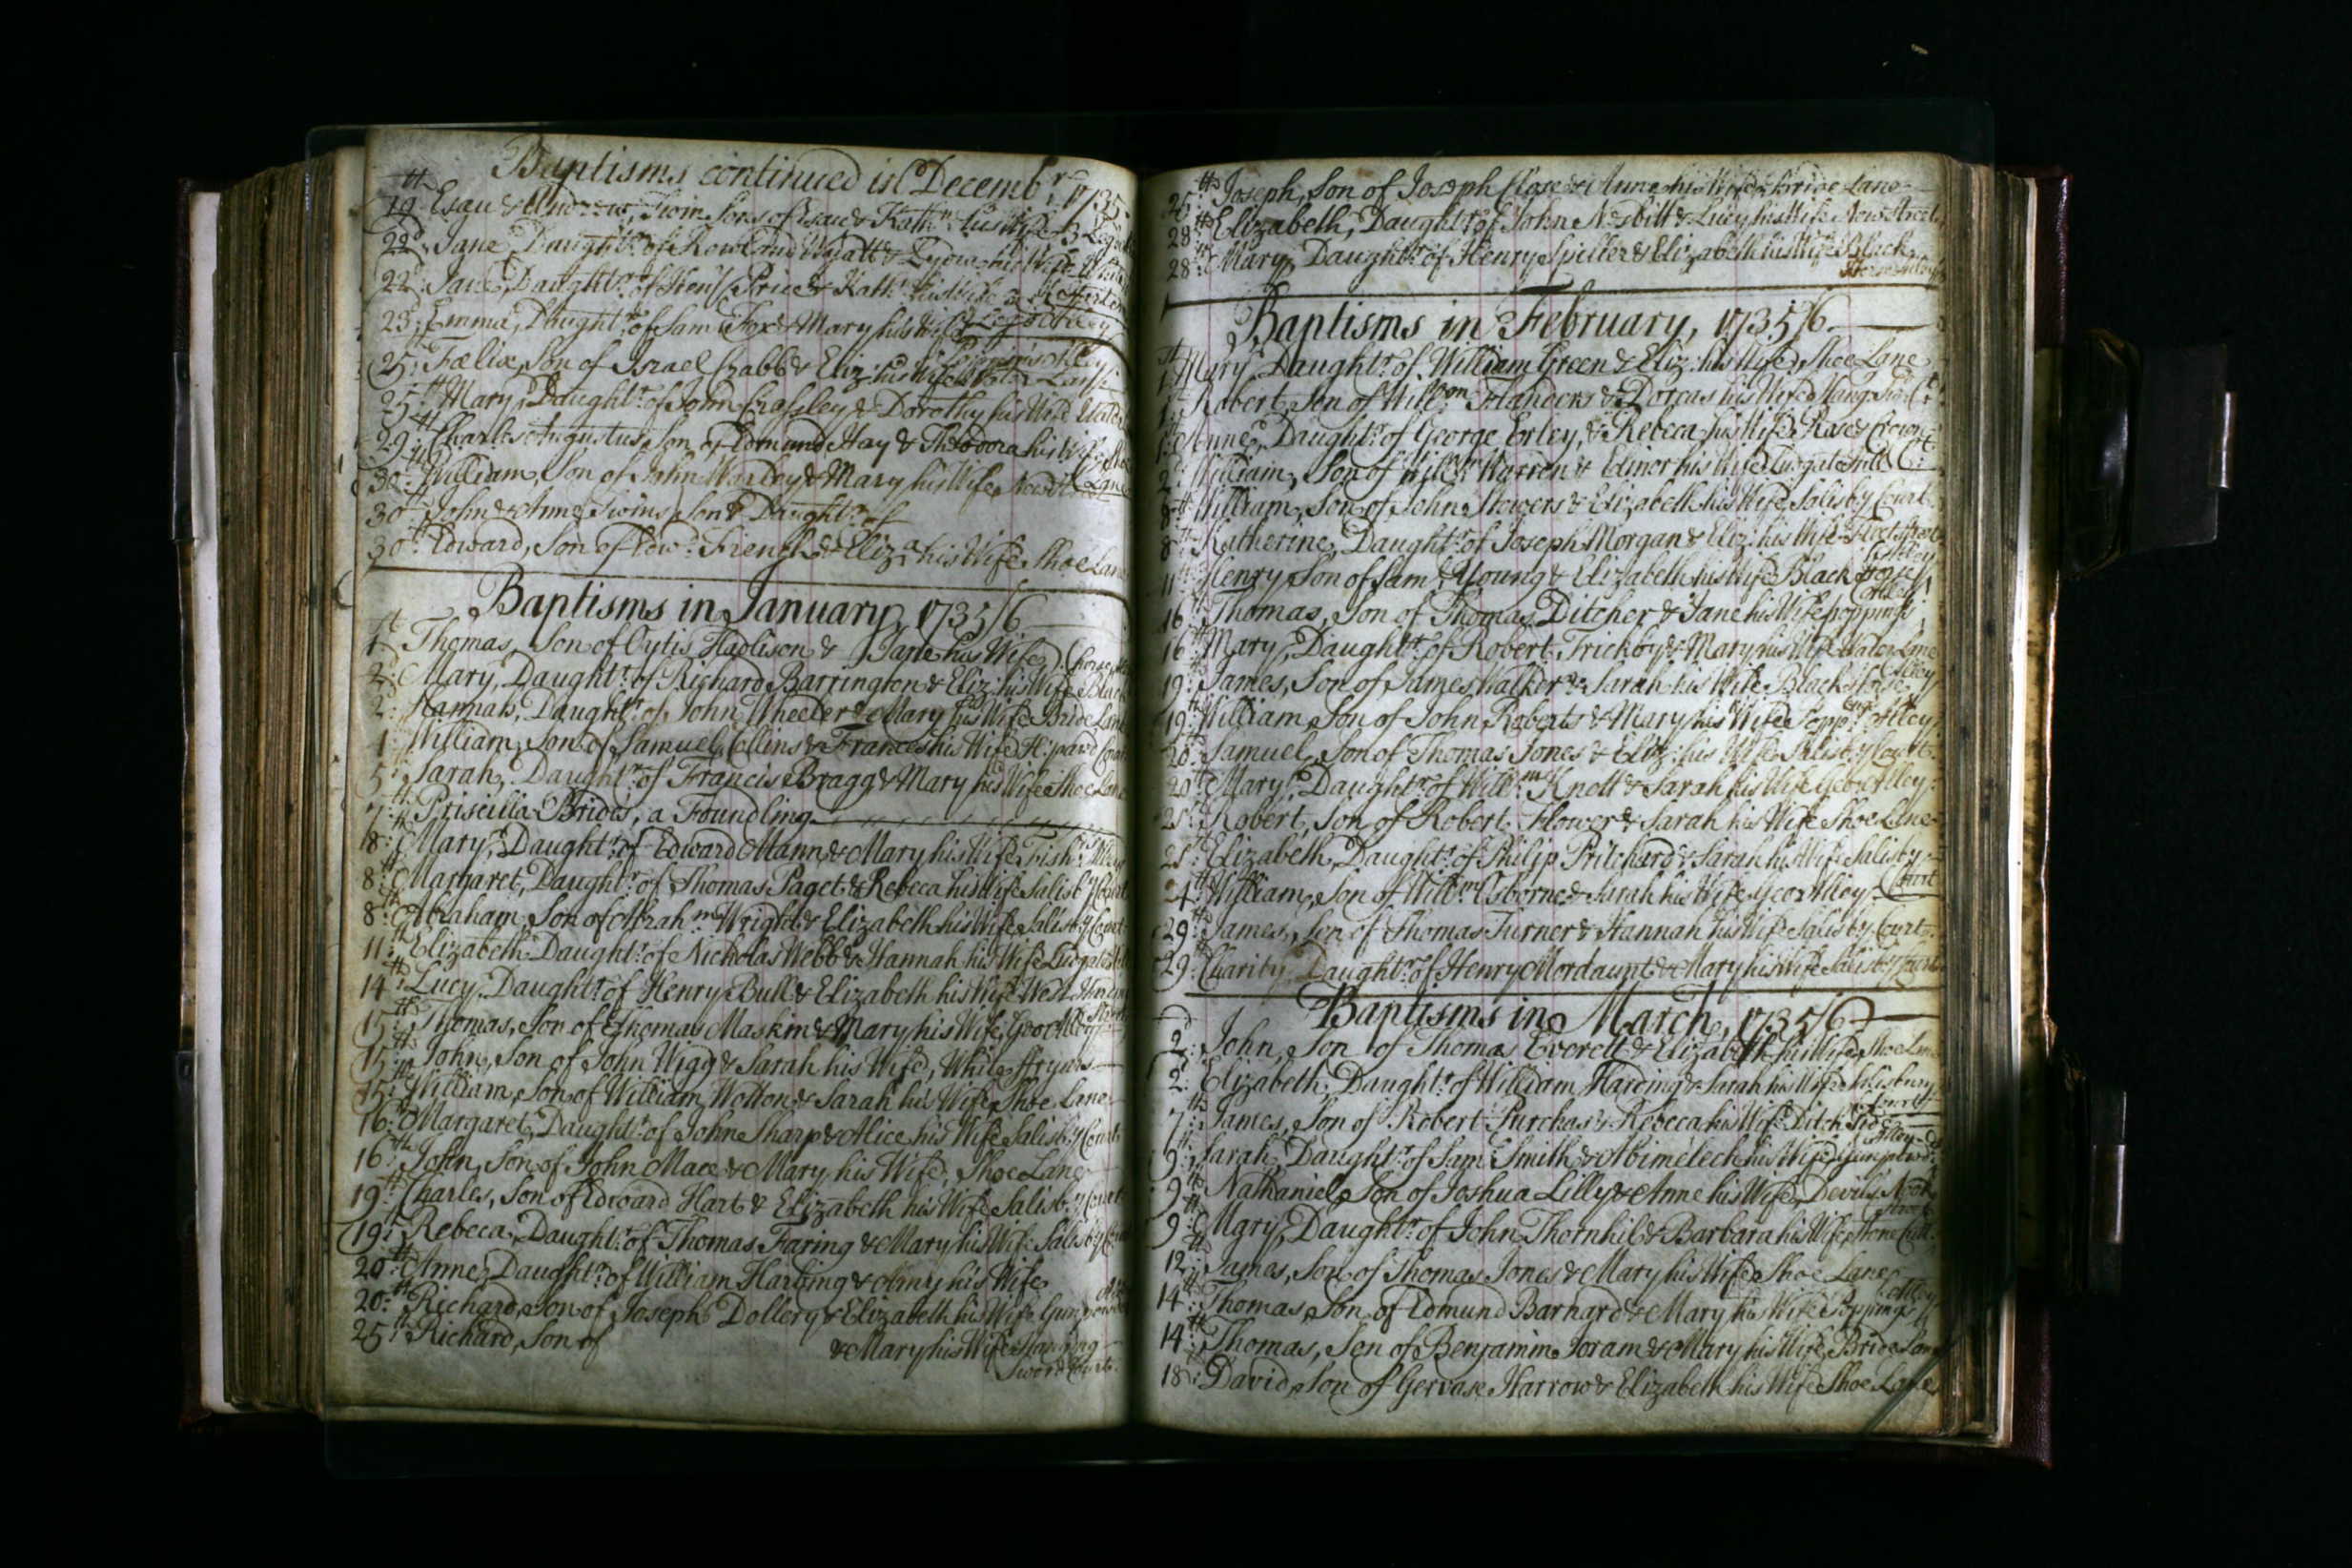 Baptisms continued in Decembr. 1735.
19th Esau & Andrew, Twin Sons of Esau & Kathn. his Wife 3 Leg
22d. Jane, Daughtr. of Rowland Wyatt & Lydia his Wife
22. Jane, Daughtr. of Price & Kath. his Wife
23. Emma, Daughtr. of Sam Fox & Mary his Wife
Alley
25. Fœlix, Son of Israel Crabb & Eliz: his Wife Water Lane
25th Mary, Daughtr. of John Crassley & Dorothy his Wife Water
29th Charles Augustus Son of Edmund Hay & Theodora his Wife Shoe
Lane
30. William, Son of John Warley & Mary his Wife New
30th John & Anne Twins Son & Daughtr. of
30th Edward, Son of Edwd. French & Eliza his Wife Shoe Lane
Baptisms in January, 1735/6
1st Thomas, Son of Hadlison & Jane his Wife
2. Mary, Daughtr. of Richard Barrington & Eliz: his Wife Black
2. Hannah, Daughtr. of John Wheeler & Mary his Wife Bride Lane
1. William, Son of Samuel Collins & Frances his Wife
5. Sarah, Daughtr. of Francis Bragg & Mary his Wife Shoe Lane
7th Priscilla Brides, a Foundling
8th Mary, Daughtr. of Edward Mann & Mary his Wife
8th Margaret, Daughtr. of Thomas Paget & Rebeca his Wife Salisby. Court
8th Abraham, Son of Abrahm. Wright & Elizabeth his Wife Salisby. Court
11th Elizabeth Daughtr. of Nicholas Webb & Hannah his Wife Ludgate
14th Lucy, Daughtr. of Henry Bull & Elizabeth his Wife
15th Thomas, Son of Thomas Maskin & Mary his Wife, Alley
15th John, Son of John Wigg & Sarah his Wife, White ffryers
15th William, Son of William Wotton & Sarah his Wife Shoe Lane
16th Margaret, Daughtr. of John Sharp & Alice his Wife Salisby. Court
16th John, Son of John Mace & Mary his Wife, Shoe Lane
19th Charles, Son of Edward Hart & Elizabeth his Wife Salisby. Court
19th Rebeca, Daughtr. of Thomas Faring & Mary his Wife Salisby.
20th Anne, Daughtr. of William Harding & Amy his Wife
20th Richard, Son of Joseph Dollery & Elizabeth his Wife
25th Richard, Son of & Mary his Wife Hanging
Sword Court.
26th Joseph, Son of Joseph Close & Anne his Wife Bride Lane
28th Elizabeth, Daughtr. of John Nesbitt & Lucy his Wife New Street
28th Mary, Daughtr. of Henry Spicter & Elizabeth his Wife Black
Horse Alley
Baptisms in February, 1735/6.
1st Mary, Daughtr. of William Green & Eliz: his Wife, Shoe Lane
1st Robert, Son of Willm. Flanders & Dorcas his Wife Hang. Swd. Ct.
1st Anne, Daughtr. of George Erley, & Rebeca his Wife Rose & Crown
2d. William, Son of Willm. Warren & Elinor his Wife Ludgate Hill
8th William, Son of John Stowers & Elizabeth his Wife Salisby Court
8th Katherine, Daughtr. of Joseph Morgan & Eliz: his Wife Fleet Street
11th Henry, Son of Sam: Young & Elizabeth his Wife Black Horse Alley
16th Thomas, Son of Thomas Ditcher & Jane his Wife Poppings Alley
16th Mary, Daughtr. of Robert Trickby & Mary his Wife Water Lane
19th James, Son of James Walker & Sarah his Wife Black Horse Alley
19th William Son of John Roberts & Mary his Wife Popping Alley
20. Samuel, Son of Thomas Jones & Eliz: his Wife Salisby Court.
20th Mary, Daughtr. of Willm. Knott & Sarah his Wife Alley.
21st Robert, Son of Robert Flower & Sarah his Wife Shoe Lane
21st Elizabeth, Daughtr. of Philip Pritchard & Sarah his Wife Salisby.
Court
24th William, Son of Willm. Osborne & Sarah his Wife Alley
29th James, Son of Thomas Turner & Hannah his Wife Salisby. Court.
29th Charity, Daughtr. of Henry Mordaunt & Mary his Wife Salisby Court
Baptisms in March, 1735/6
2d. John, Son of Thomas Everett & Elizabeth his Wife, Shoe Lane
2. Elizabeth, Daughtr. of William Harding & Sarah his Wife Salisbury
Court
7th James, Son of Robert Purchas & Rebeca his Wife Ditch Side
9th Sarah, Daughtr. of Sam: Smith & Abimelech his Wife Gunpowdr. Alley
9th Nathaniel, Son of Joshua Lilly & Anne his Wife, Devils Nook
9th Mary, Daughtr. of John Thornhil & Barbara his Wife, Stone Cutt. Street
12th James, Son of Thomas Jones & Mary his Wife Shoe Lane
14th Thomas, Son of Edmund Barnard & Mary his Wife Poppings Alley
14th Thomas, Son of Benjamin Joram & Mary his Wife, Bride Lane
18. David, Son of Gervase Harrow & Elizabeth his Wife Shoe Lane